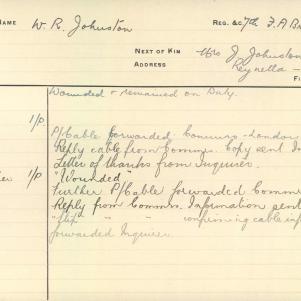 NAME W. R. Johnston REG. &c 7th F.A.B
NEXT OF KIN Mrs J Johnston
ADDRESS Reynella -
Wounded & remained on Duty.
1/0 P/Cable forwarded. Commrs - London
Reply cable from Commrs. Copy sent
Letter of thanks from Inquirer.
1/0 "Wounded"
Further P/Cable forwarded Comm
Reply from Commrs. Information sent
" " confirming cable inf
forwarded Inquirer